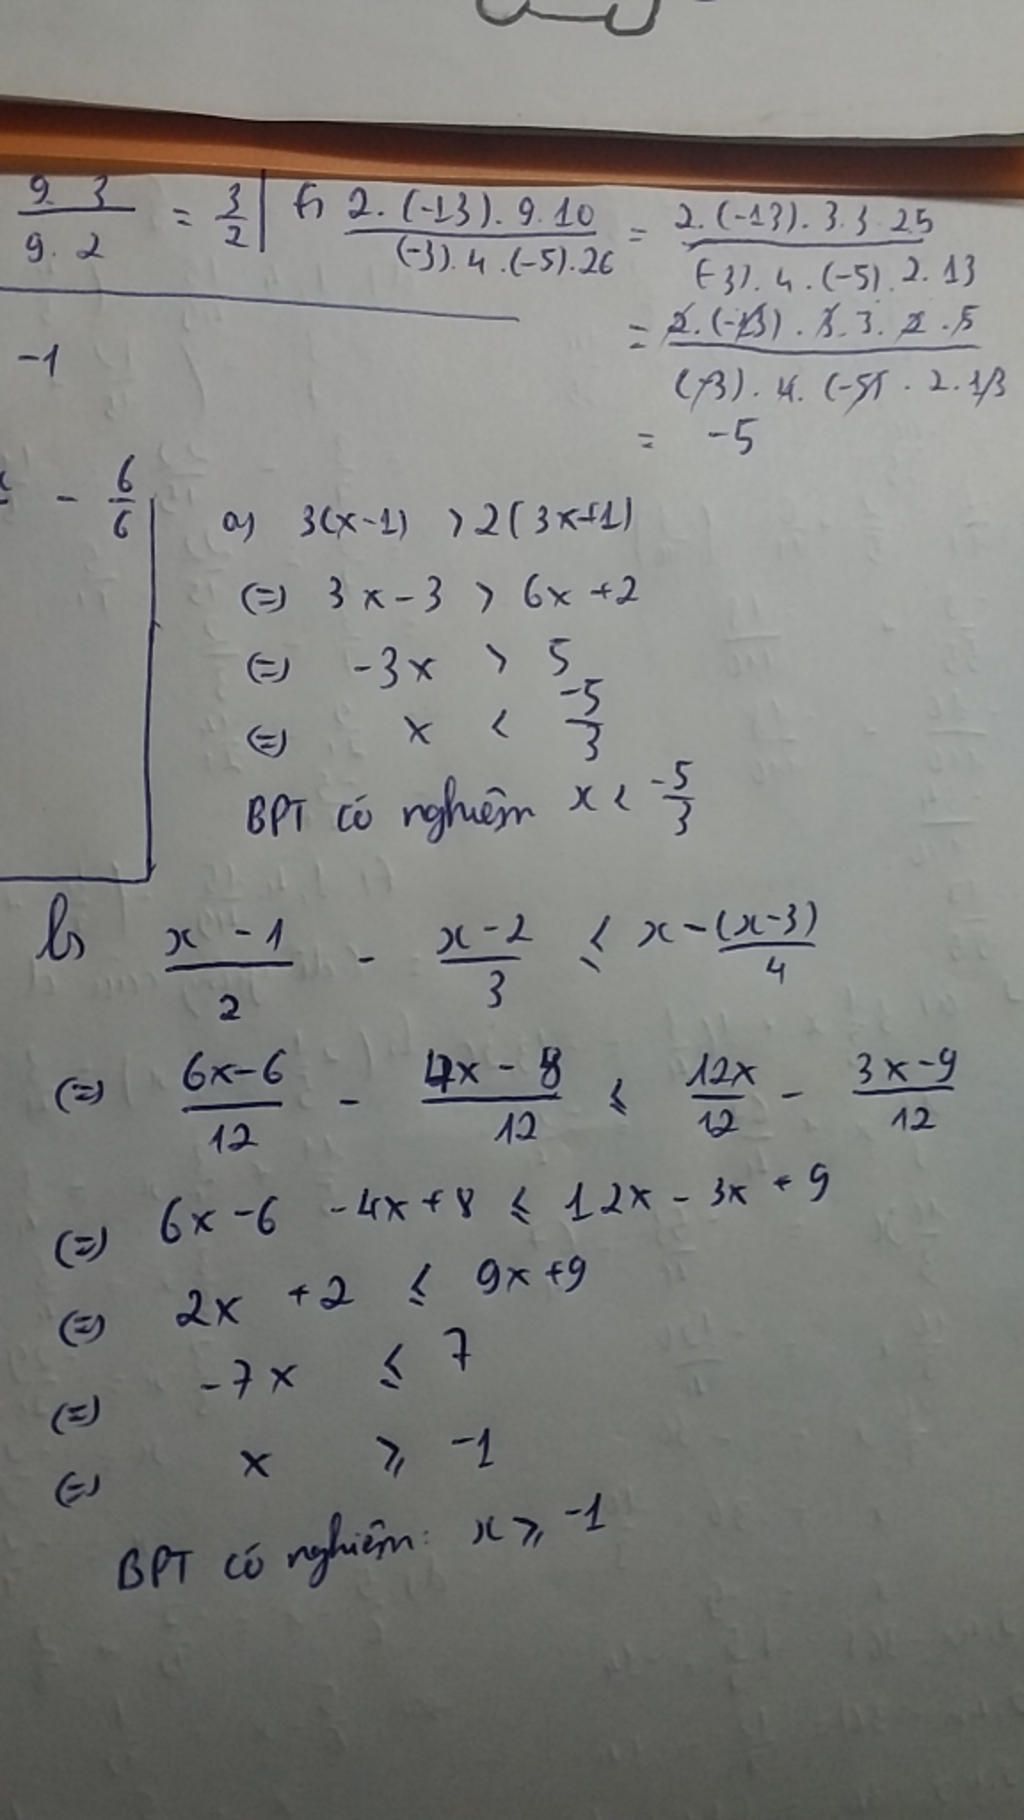 9.3/9.2 = 3/2 | b) 2.(-13).9.10/(-3).4.(-5).26 = 2.(-13).3.3.25/(-3).4.(-5).2.13
= 2.(-13).3.3.2.5/(-3).4.(-5).2.13
-1
= -5
- 6/6
a) 3(x-1) > 2(3x+1)
(=) 3x-3 > 6x+2
(=) -3x > 5
(=) x < -5/3
BPT có nghiệm x < -5/3
b) x-1/2 - x-2/3 ≤ x-(x-3)/4
(=) 6x-6/12 - 4x-8/12 ≤ 12x/12 - 3x-9/12
(=) 6x-6 -4x+8 ≤ 12x-3x+9
(=) 2x +2 ≤ 9x+9
(=) -7x ≤ 7
(=) x ≥ -1
BPT có nghiệm: x ≥ -1